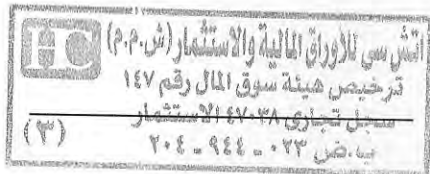 ١٧
اتش سي للأوراق المالية والاستثمار (ش.م.م)
HC
ترخيص هيئة سوق المال رقم ١٤٧
سجل تجارى ٤٧٠٣٨ الاستثمار
ب.ض ٠٢٣ - ٩٤٤ - ٢٠٤
(٣)